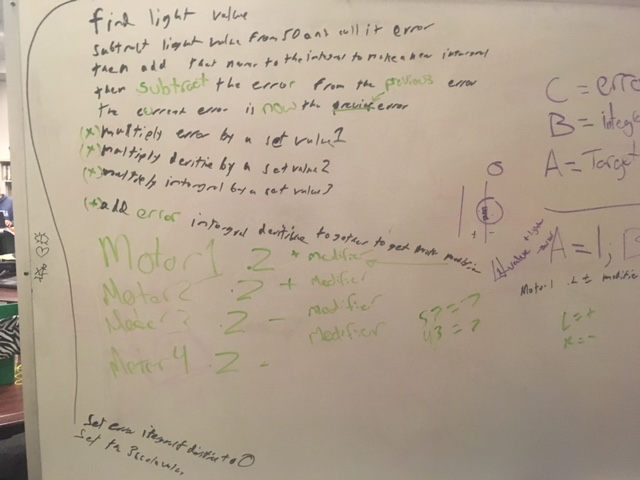 find light value
subtract light value from 50 and call it error
then add that numer to the integral to make a new integral
then subtract the error from the previous error
the current error is now the previous error
(*) multiply error by a set value 1
(*) multiply deritive by a set value 2
(*) multiply intergral by a set value 3
(*) add error intorgral deritive together to get
Motor 1 .2 + modifier
Motor 2 .2 + modifier
Motor 3 .2 - modifier
Motor 4 .2 - modifier
57 = -7
43 = 7
C = erro
B = integ
A = Target
O
+ -
Δ value
A = 1, B
Motor 1 .2 ± modifier
L = +
x = -
Set error itegral deritive to 0
Set the